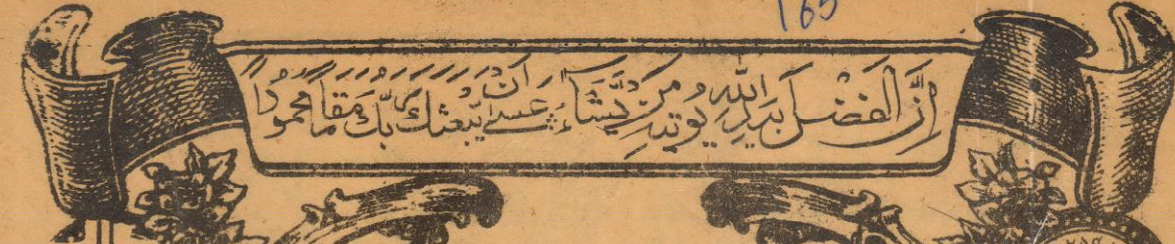 165
اِنَّ الْفَضْلَ بِيَدِ اللّٰهِ يُؤْتِيْهِ مَنْ يَّشَآءُ عَسٰى اَنْ يَّبْعَثَكَ رَبُّكَ مَقَامًا مَّحْمُوْدًا